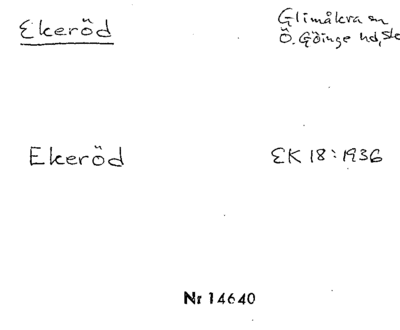 Ekeröd
Glimåkra sn
Ö. Göinge hd, Sk
Ekeröd
EK 18:1936
Nr 14640